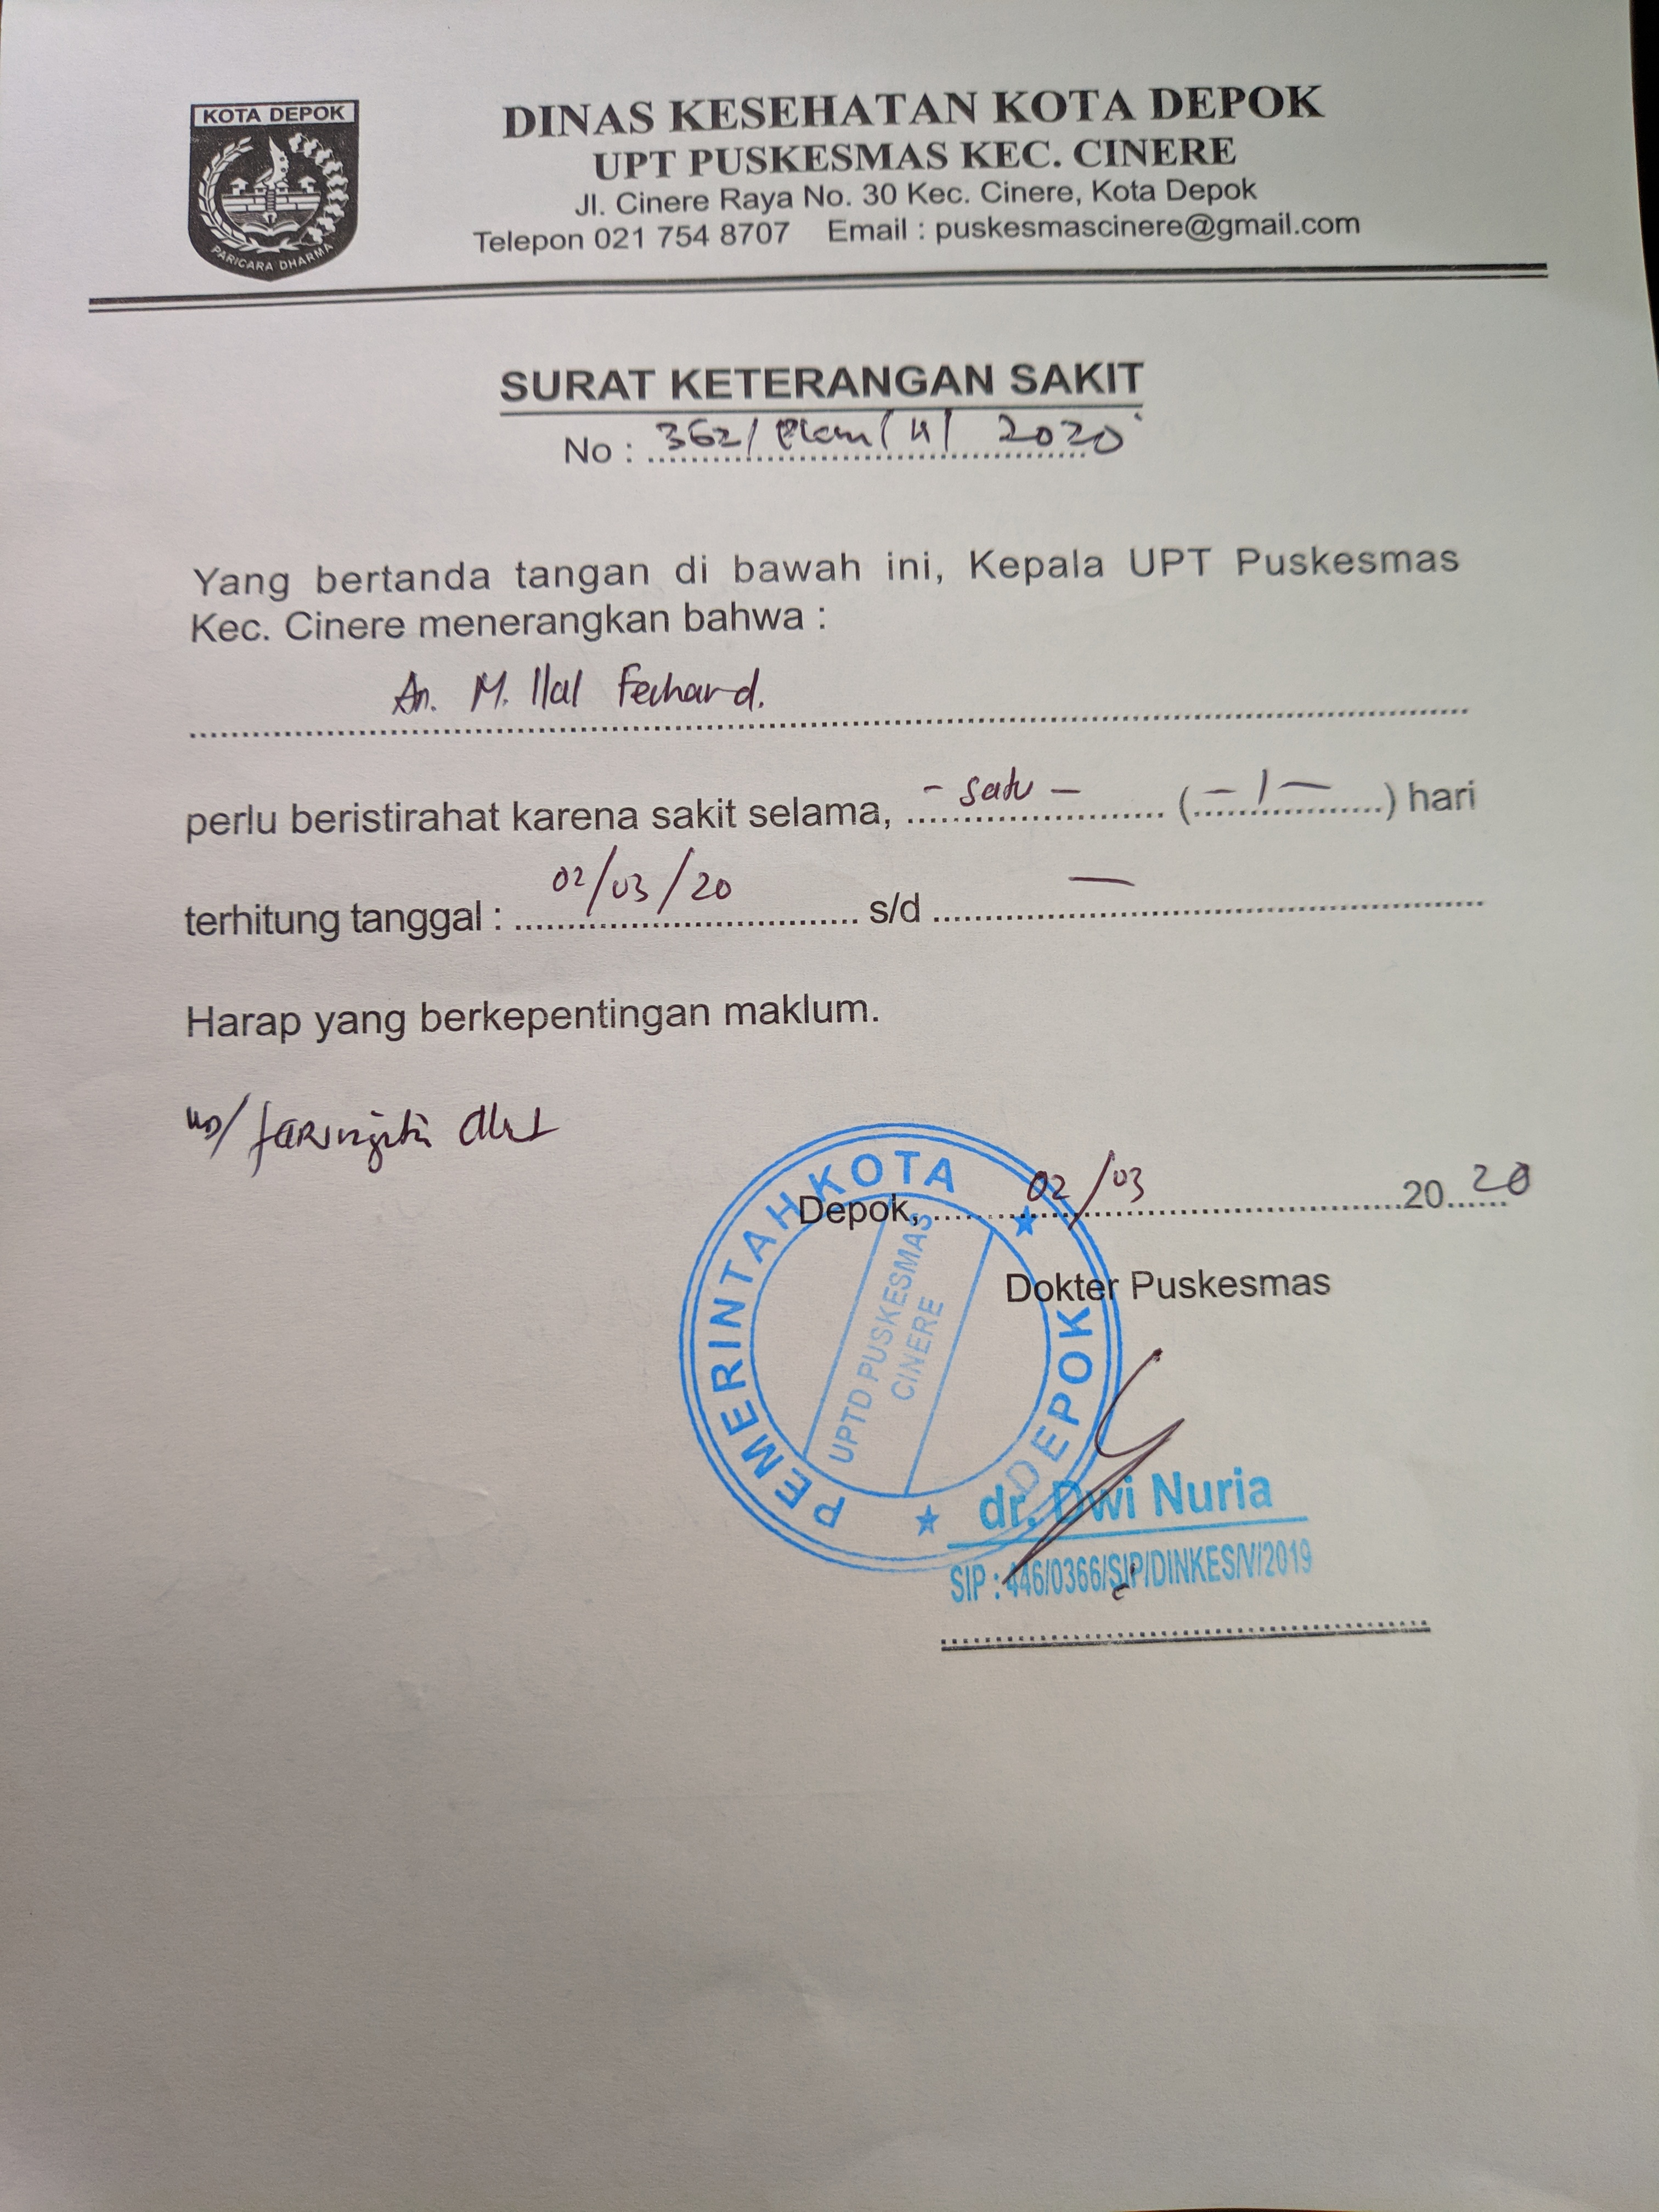 KOTA DEPOK
PARICARA DHARMA
DINAS KESEHATAN KOTA DEPOK
UPT PUSKESMAS KEC. CINERE
Jl. Cinere Raya No. 30 Kec. Cinere, Kota Depok
Telepon 021 754 8707 Email : puskesmascinere@gmail.com
SURAT KETERANGAN SAKIT
No : 362/ 2020
Yang bertanda tangan di bawah ini, Kepala UPT Puskesmas
Kec. Cinere menerangkan bahwa :
An. M. Ilal
perlu beristirahat karena sakit selama, - satu - (- 1 -) hari
terhitung tanggal : 02/03/20 s/d —
Harap yang berkepentingan maklum.
Depok, 02/03 2020
Dokter Puskesmas
PEMERINTAH KOTA DEPOK
UPTD PUSKESMAS
CINERE
dr. Dwi Nuria
SIP : 446/0366/SIP/DINKES/V/2019